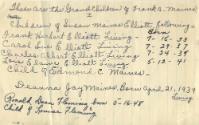 These are the Grand Children of Frank A. Maines.
Children of Susan Maines Elliott, following
Born
Frank Herbert Elliott Living 7-16-33
Carol Sue Elliott Living 7-29-37
Charles Elliott Living
Lois Elaine Elliott Living 5-12-41
Child of Redmond C. Maines.
Deanne Jay Maines, Born April 21, 1939
Living
Ronald Dean Fleming born 5-16-48
Child of Louise Fleming